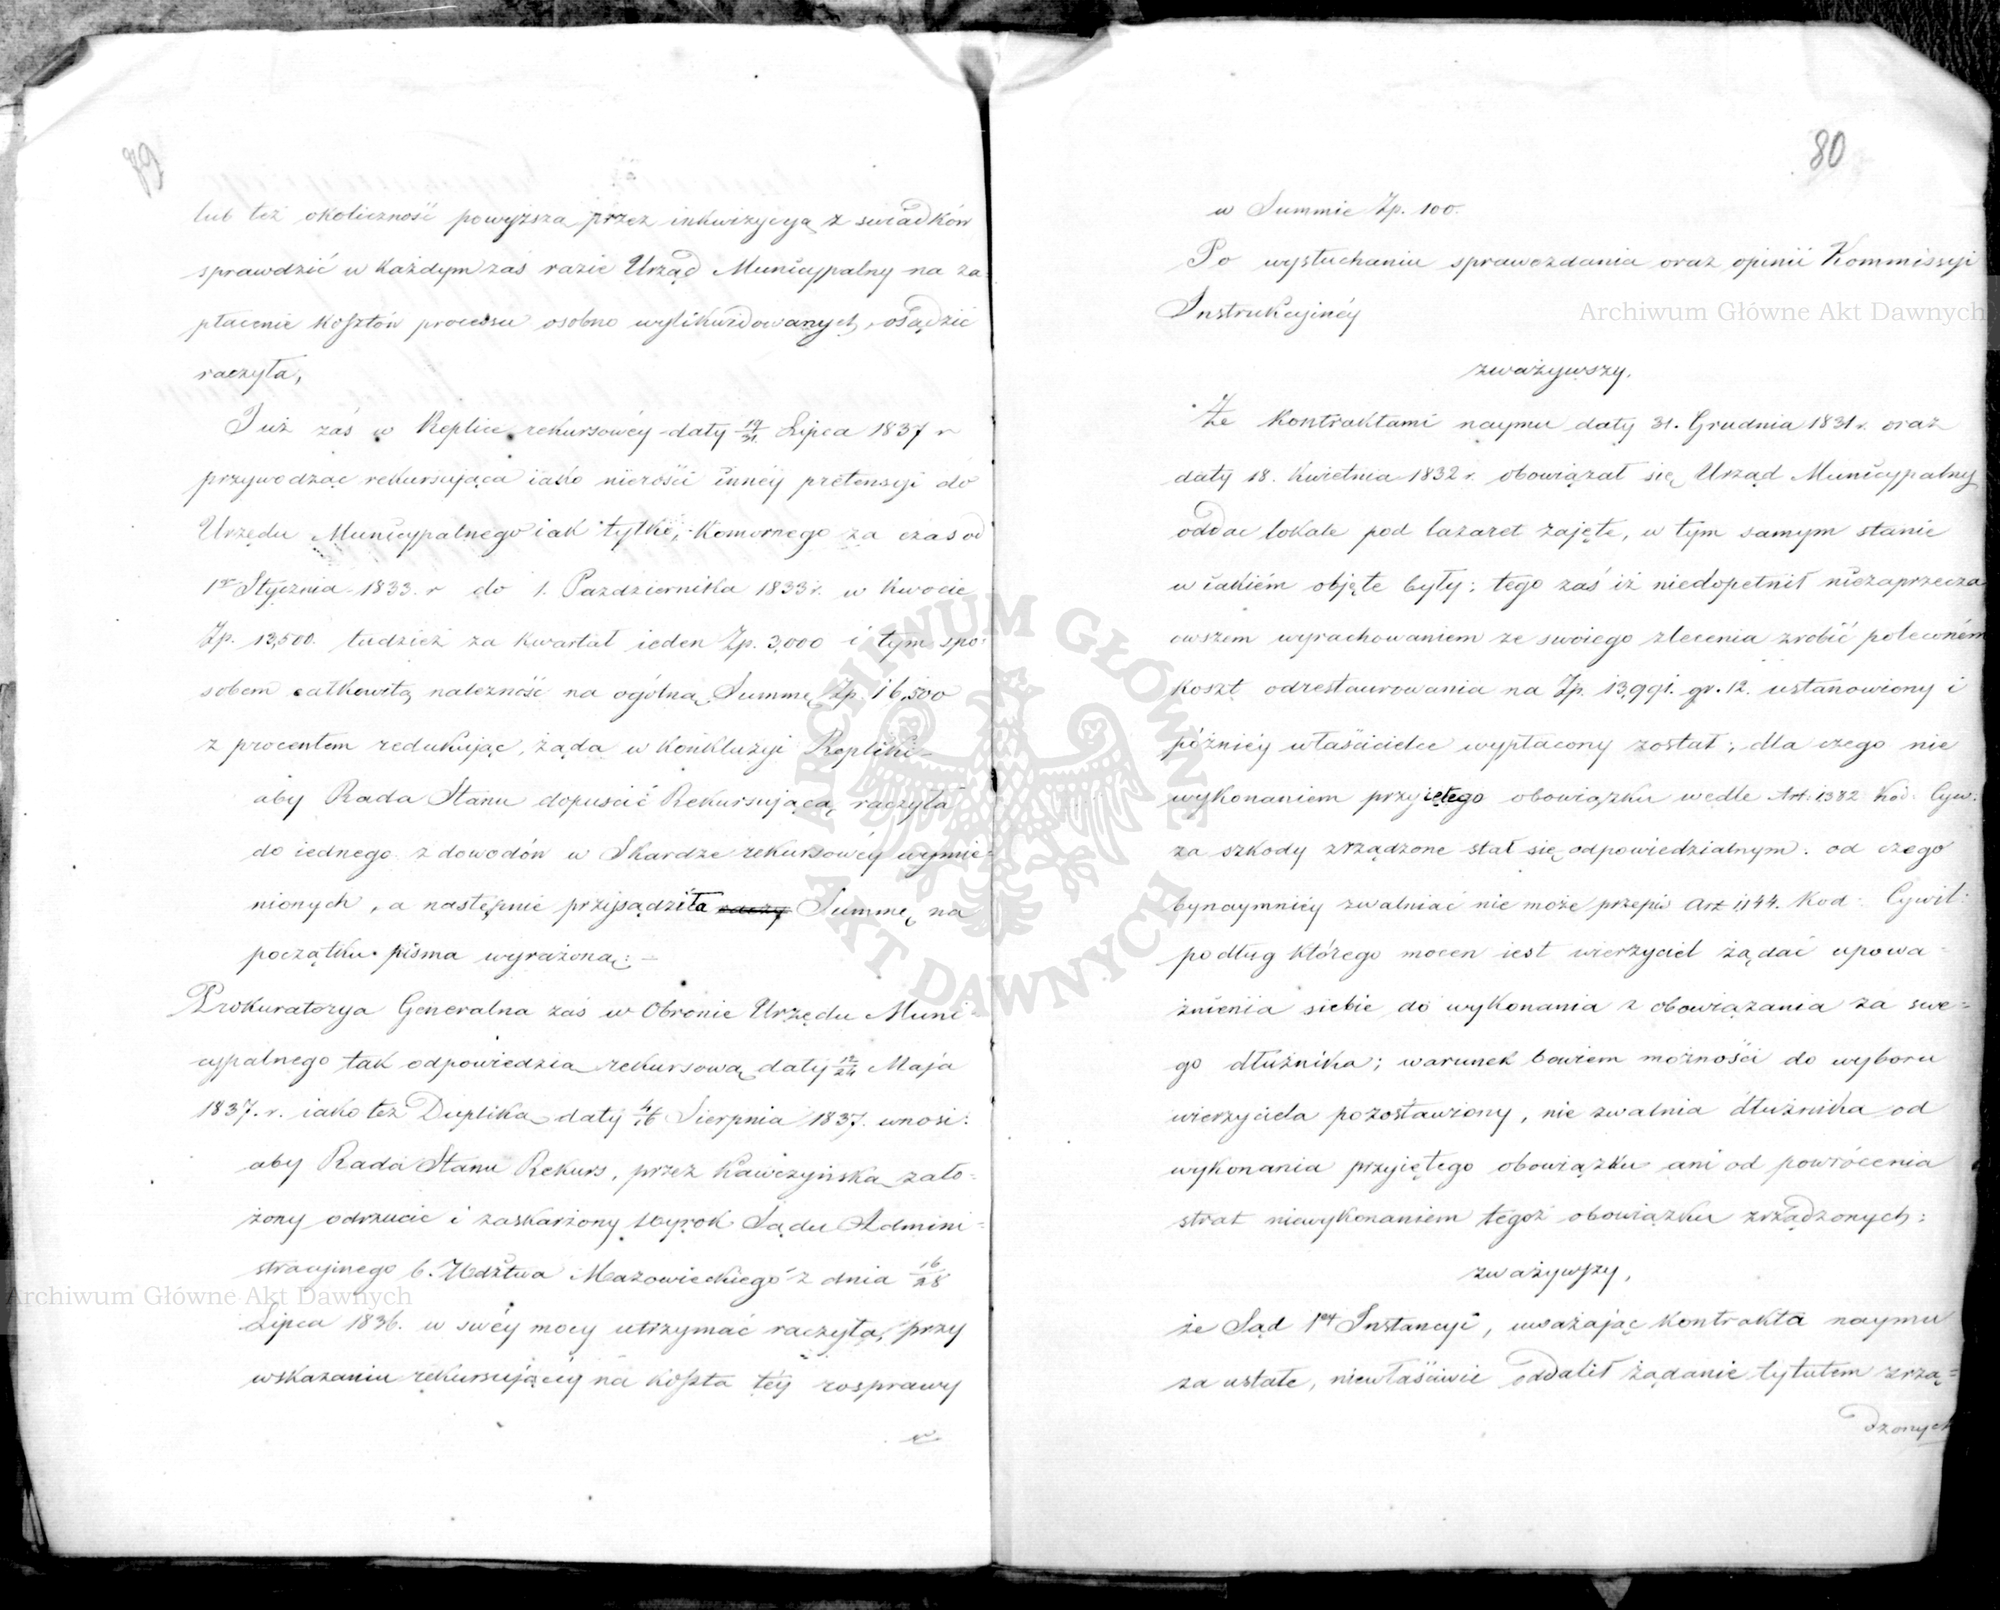 79
lub też okoliczność powyższa przez inkwizycyą z swiadków
sprawdzić w każdym zaś razie Urząd Municypalny na za-
płacenie kosztów processu osobno wylikwidowanych, osądzić
raczyła,
Już zaś w Replice rekursowéy daty 19/31 Lipca 1837 r
przywodząc rekursująca iako nierości innéy pretensyi do
Urzędu Municypalnego iak tylko, Komornego za czas od
1go Stycznia 1833. r do 1. Pazdziernika 1833 r. w kwocie
Zp. 13,500. tudzież za kwartał ieden Zp. 3,000 i tym spo-
sobem całkowitą należność na ogólną Summę Zp. 16,500
z procentem redukując, żąda w konkluzyi Repliki –
aby Rada Stanu dopuścić Rekursującą raczyła
do iednego z dowodów w Skardze rekursowéy wymie-
nionych, a następnie przysądziła raczy Summę na
początku pisma wyrażoną: –
Prokuratorya Generalna zaś w Obronie Urzędu Muni-
cypalnego tak odpowiedzią rekursową daty 12/24 Maja
1837. r. iako też Dupliką daty 4/16 Sierpnia 1837. wnosi:
aby Rada Stanu Rekurs, przez Kawczyńską zało-
żony odrzucić i zaskarżony Wyrok Sądu Admini-
stracyjnego b. Wdztwa Mazowieckiego z dnia 16/28
Lipca 1836. w swéy mocy utrzymać raczyła, przy
wskazaniu rekursującéy na koszta téy rosprawy
w
80
w Summie Zp. 100.
Po wysłuchaniu sprawozdania oraz opinii Kommissyi
Instrukcyinéy
zważywszy,
Że kontraktami naymu daty 31. Grudnia 1831 r. oraz
daty 18. Kwietnia 1832 r. obowiązał się Urząd Municypalny
oddać lokale pod lazaret zajęte, w tym samym stanie
w iakiém objęte były; tego zaś iż niedopełnił niezaprzecza
owszem wyrachowaniem ze swoiego zlecenia zrobić poleconém
koszt odrestaurowania na Zp. 13,991. gr. 12. ustanowiony i
późniéy właścicielce wypłacony został; dla czego nie
wykonaniem przyiętego obowiązku wedle Art: 1382 Kod. Cyw:
za szkody zrządzone stał się odpowiedzialnym. od czego
bynaymniéy zwalniać nie może przepis Art 1144. Kod: Cywil:
podług którego mocen iest wierzyciel żądać upowa-
żnienia siebie do wykonania zobowiązania za swe-
go dłużnika; warunek bowiem możności do wyboru
wierzyciela pozostawiony, nie zwalnia dłużnika od
wykonania przyiętego obowiązku ani od powrócenia
strat niewykonaniem tegoż obowiązku zrządzonych:
zważywszy,
że Sąd 1éy Instancyi, uważając kontrakta naymu
za ustałe, niewłaściwie oddalił żądanie tytułem zrzą-
dzonych
Archiwum Główne Akt Dawnych
Archiwum Główne Akt Dawnych
ARCHIWUM GŁÓWNE AKT DAWNYCH